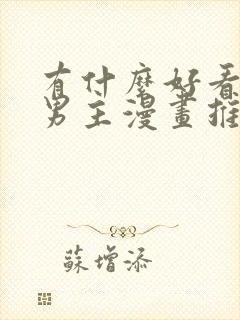 有什麼好看
男主漫畫推
蘇增添